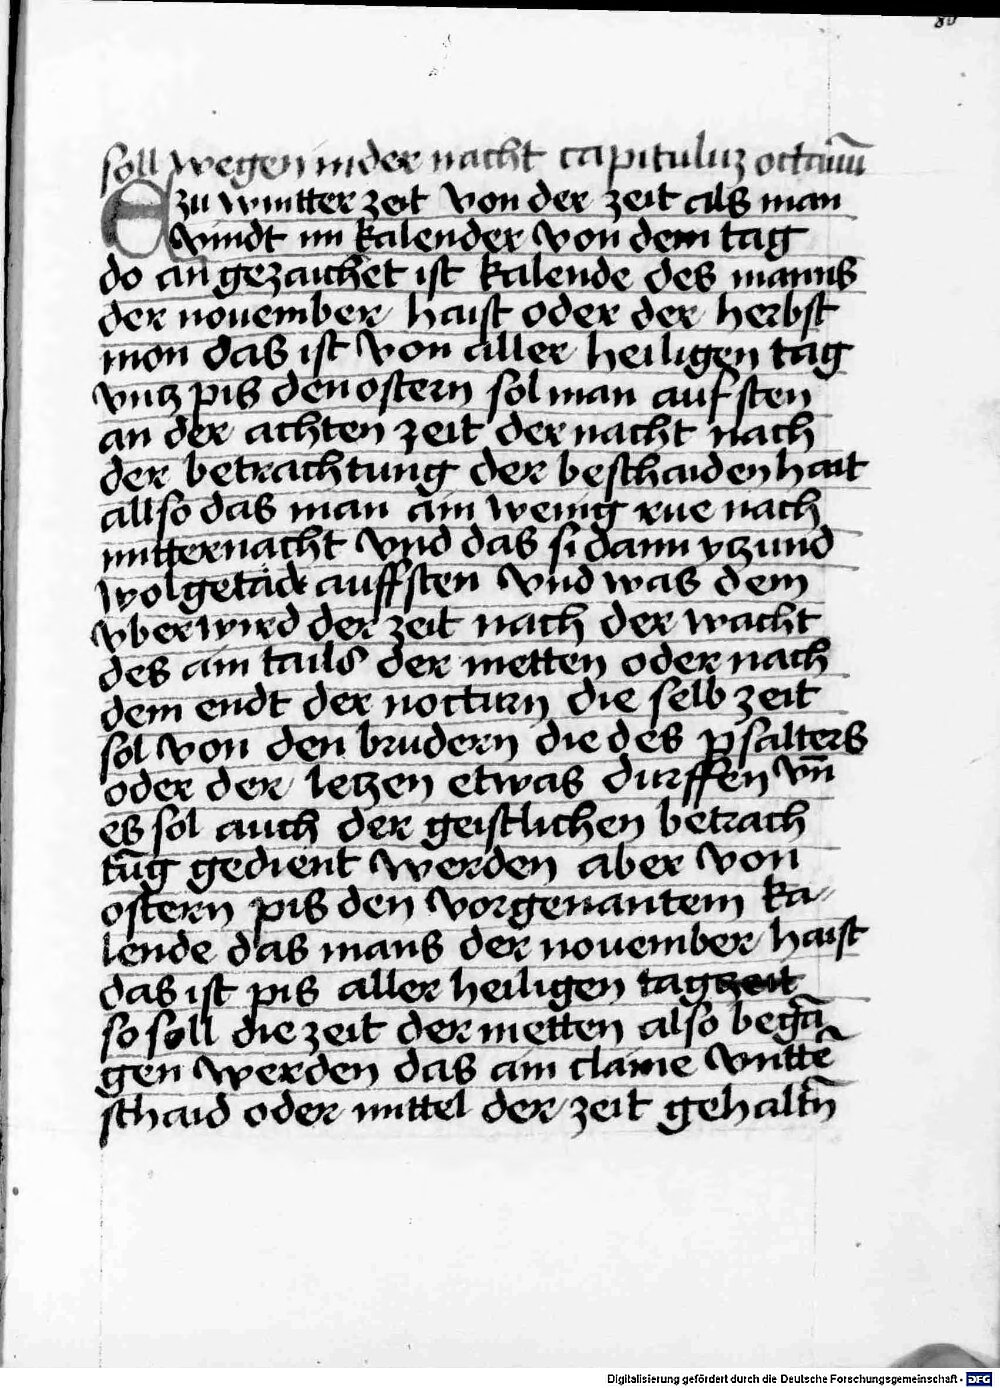 80
soll wegen in der nacht capituluz octauū
E zu wintter zeit von der zeit als man
vindt im kalender von dem tag
do an gezaichet ist kalende des manns
der nouember haist oder der herbst
mon das ist von aller heiligen tag
vntz pis den ostern sol man auf sten
an der achten zeit der nacht nach
der betrachtung der beschaidenhait
allso das man ain wenig rue nach
mitternacht vnd das si dann ytzund
wolgetäde auffsten vnd was dem
vber wird der zeit nach der wacht
des ain tails der metten oder nach
dem endt der nocturn die selb zeit
sol von den brudern die des psalters
oder der letzen etwas durffen vn̄
es sol auch der geistlichen betrach
tūg gedient werden aber von
ostern pis den vorgenantem ka-
lende das mans der nouember haist
das ist pis aller heiligen tag zeit
so soll die zeit der metten also begā
gen werden das ain claine vntte᷑
schaid oder mittel der zeit gehaltn̄
Digitalisierung gefördert durch die Deutsche Forschungsgemeinschaft - DFG